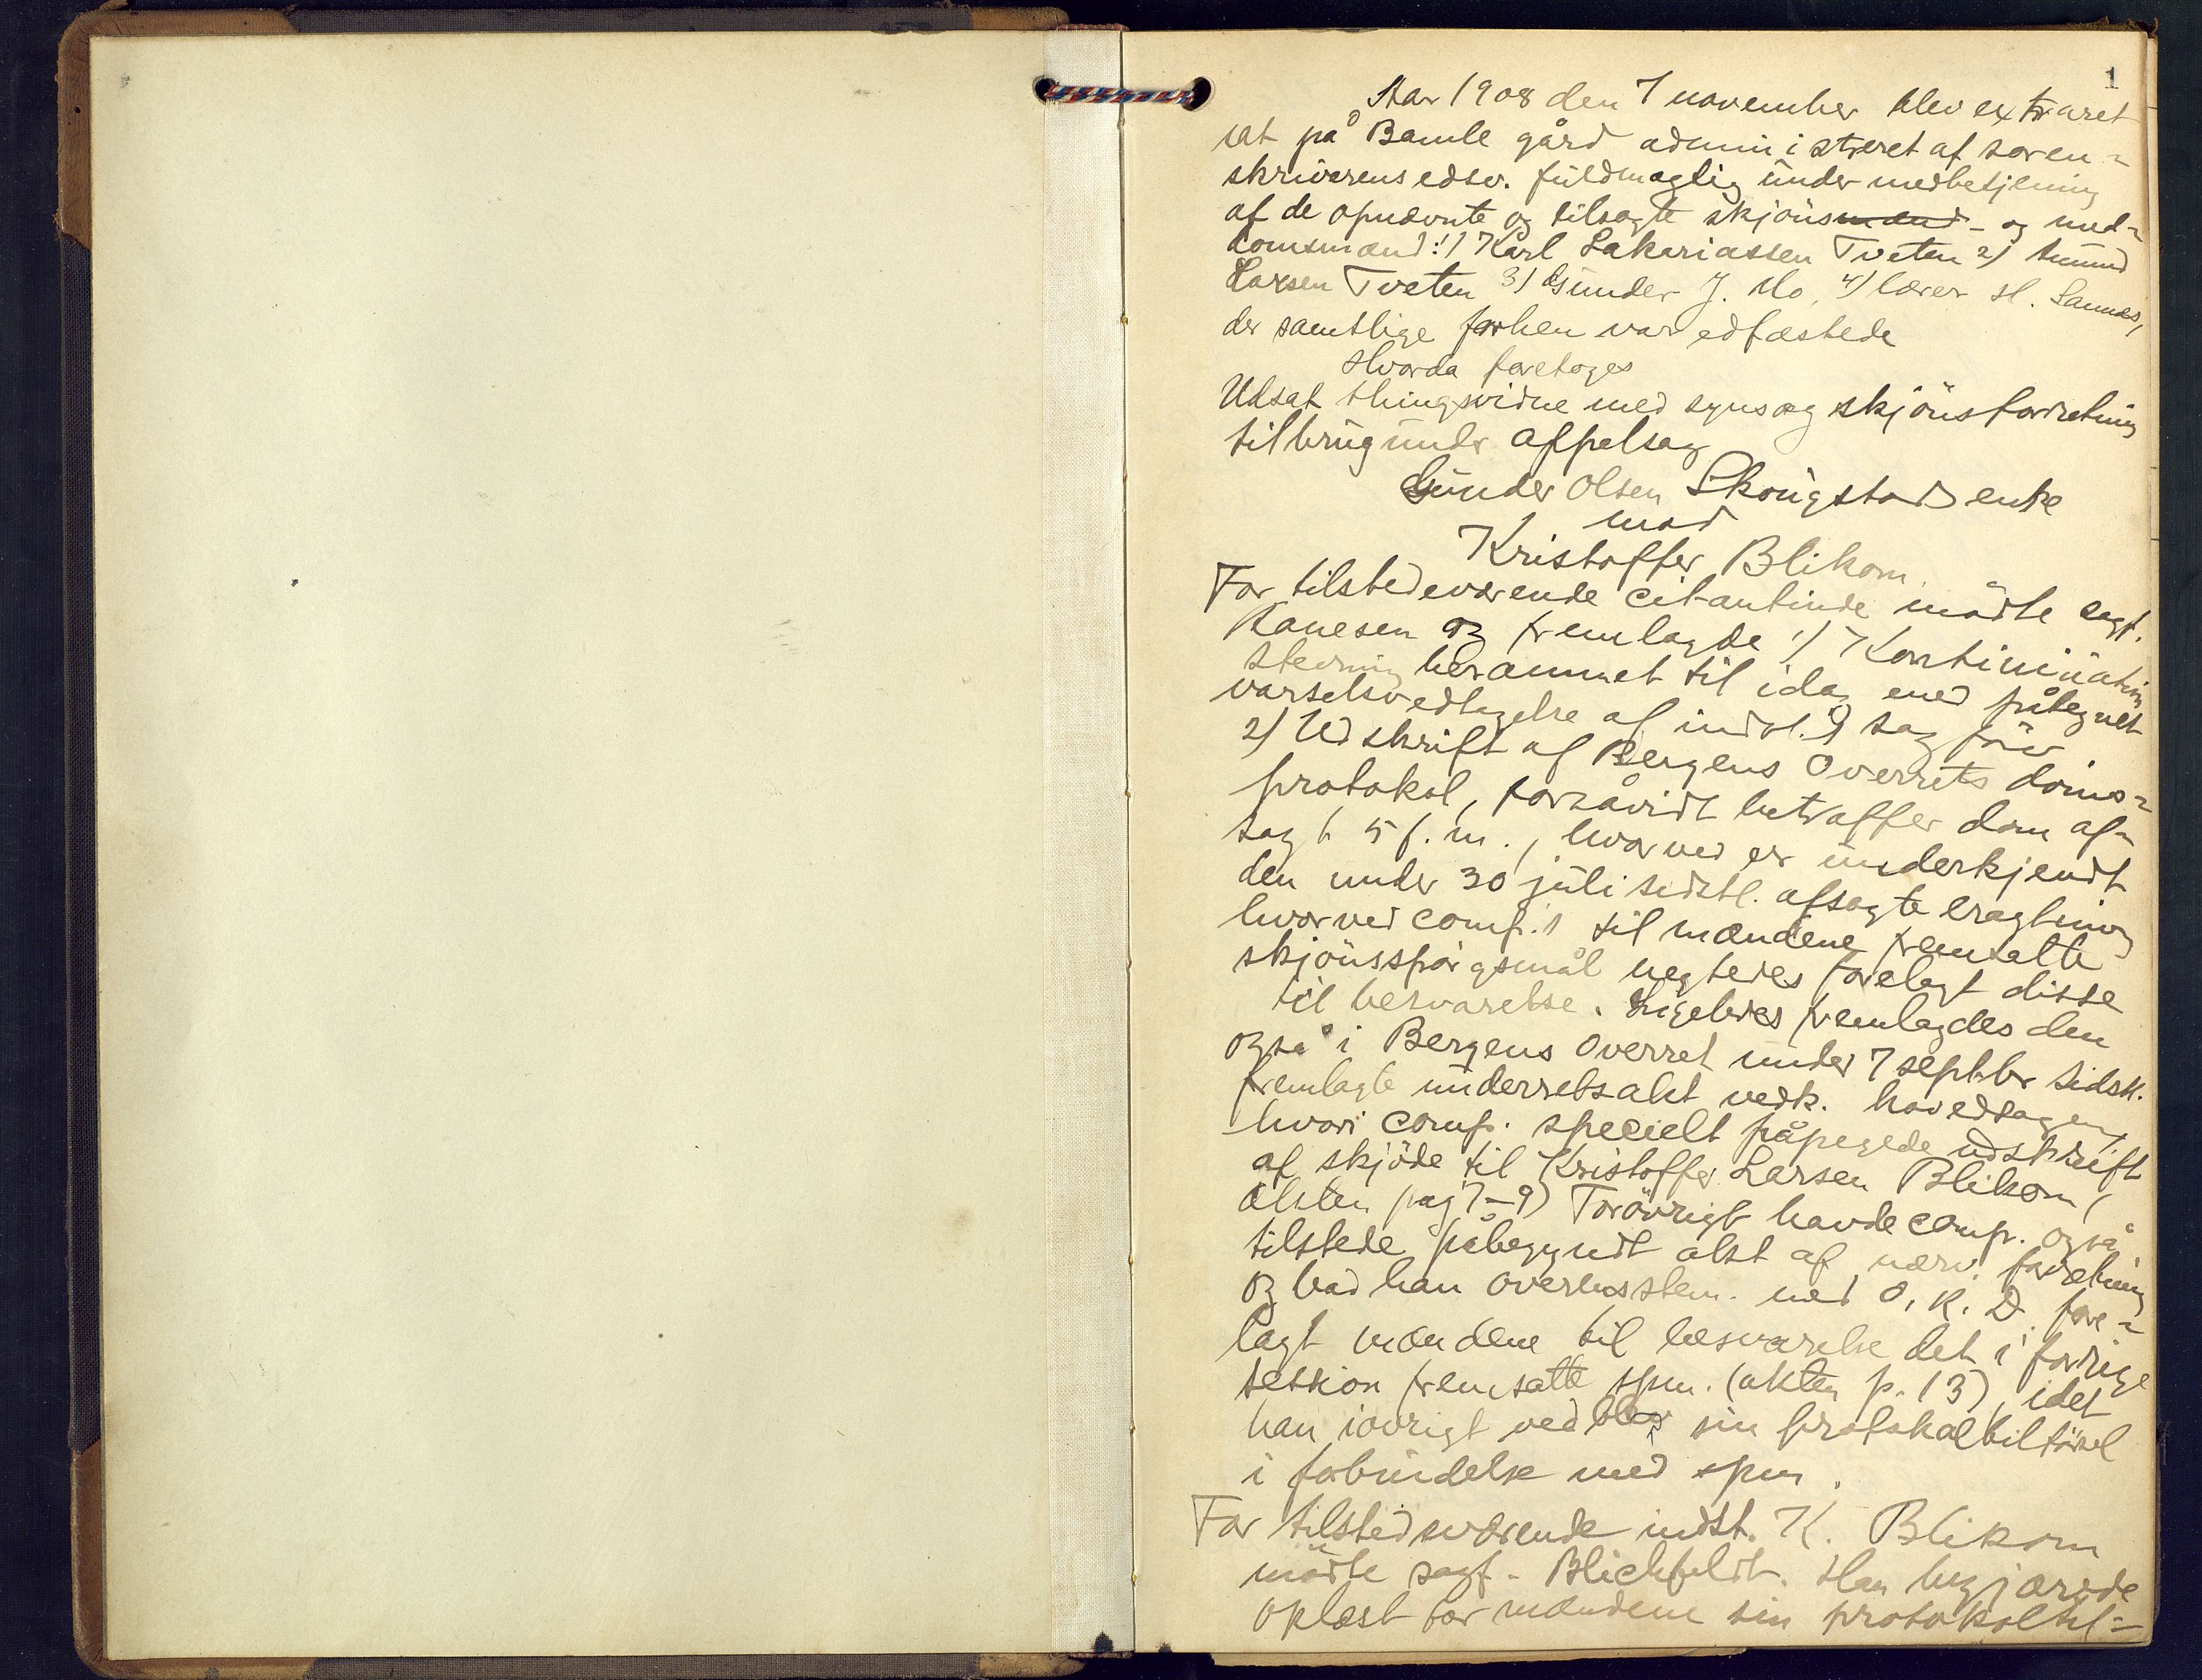 1
Aar 1908 den 7 november blev extraret
sat på Bamle gård administreret af soren-
skriverens edsv. fuldmægtig under medbetjening
af de opnævnte og tilsagte skjönsmænd - og med-
domsmænd: 1) Karl Sakariassen Tveten 2) Amund
Larsen Tveten 3) Gunder J. Mo, 4) lærer H. Sannes,
der samtlige forhen var edfæstede
Hvorda foretoges
Udsat thingsvidne med syns og skjönsforretning
til brug under appelsag
Gunder Olsen Skougstad enke
mod
Kristoffer Blikom.
For tilstedeværende citantinde mödte sagf.
Kanesen og fremlagde 1) Kontinuations
stevning berammet til idag med påtegnet
varselsvedtagelse af indst.s sagförer
2) Udskrift af Bergens Overrets doms-
protokol, forsåvidt betræffer dom af-
sagt 5 f. m., hvorved er underkjendt
den under 30 juli sidstl. afsagte eragtning
hvorved comp.s til mændene fremsatte
skjönsspörgsmål negtedes forelagt disse
til besvarelse. Ligeledes fremlagdes den
også i Bergens Overret under 7 septbr sidstl.
fremlagte underretsakt vedk. hovedsagen,
hvori comp. specielt påpegede udskrift
af skjöde til Kristoffer Larsen Blikom (
akten pag 7-9) Forövrigt havde comp. også
tilstede påbegyndt akt af nærv. forretning
og bad han overensstem. med O. R. D. fore-
lagt mændene til besvarelse det i forrige
session fremsatte spm. (akten p. 13), idet
han iövrigt vedblev sin protokoltilförsel
i forbindelse med spm.
For tilstedeværende indst. K. Blikom
mödte sagf. Blichfeldt. Han begjærede
oplæst for mændene sin protokoltil-